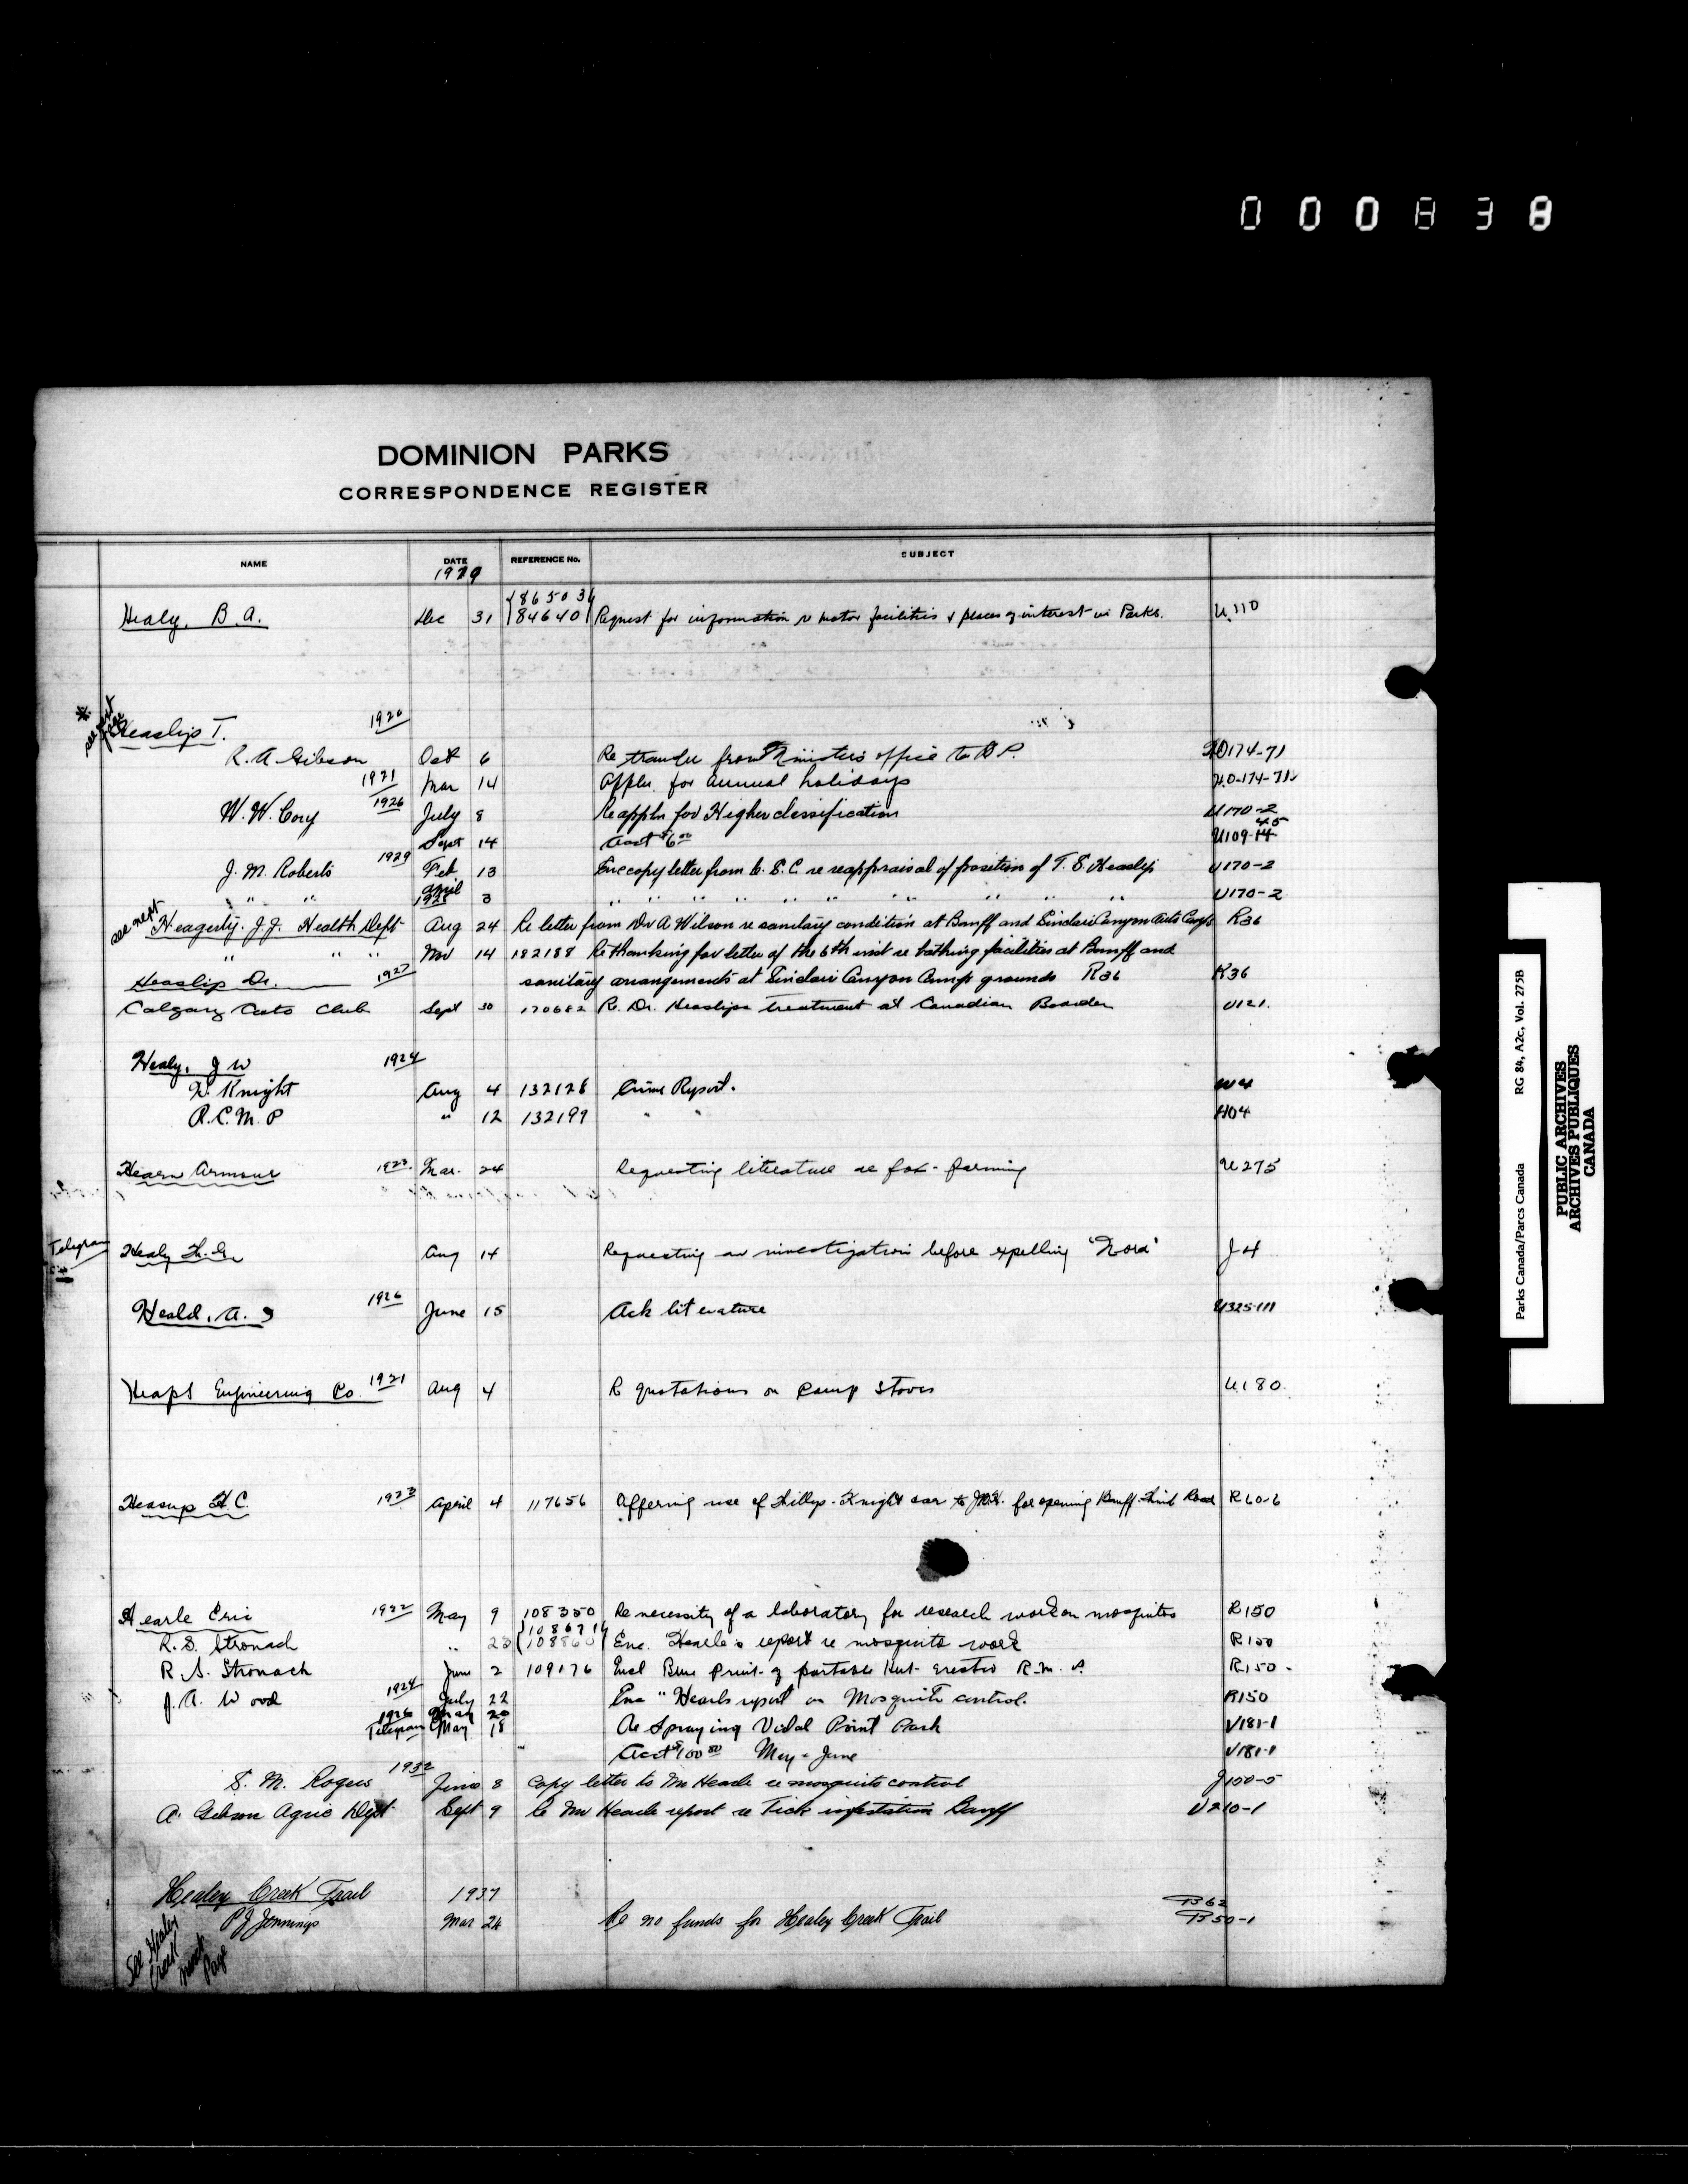 000838
DOMINION PARKS
CORRESPONDENCE REGISTER
NAME DATE REFERENCE No. SUBJECT
1919
86503
Healy, B. A. Dec 31 84640 Request for information re motor facilities & places of interest in Parks. U.110
* see next page
Heaslip T. 1920
R. A. Gibson Oct 6 Re transfer from Ministers office to D P. 174-71
1921 Mar 14 Appln. for annual holidays U.O-174-71
W. W. Cory 1926 July 8 Re appln for Higher classification U170-2
45
Sept 14 Acct $6.00 U109-14
J. M. Roberts 1929 Feb 13 Enc copy letter from C. S. C. re reappraisal of position of T. E. Heaslip U170-2
" " April 3 " " " " " " U170-2
1928
see next Heagerty. J. J. Health Dept Aug 24 Re letter from Dr A Wilson re sanitary condition at Banff and Sinclair Canyon Auto Camps R36
" " " Nov 14 182188 Re thanking for letter of the 6th inst re bathing facilities at Banff and
Heaslip Dr. 1927 sanitary arrangements at Sinclair Canyon Camp grounds R36 R36
Calgary Auto Club Sept 30 170682 Re. Dr. Heaslips treatment at Canadian Boarder U121.
Healy, J W 1924
Knight Aug 4 132128 Crime Report. W4
R. C. M. P " 12 132199 " " H04
Hearn Armour 1923. Mar. 24 Requesting literature re fox-farming U275
Telegram Healy Aug 14 Requesting an investigation before expelling "Nora" J4
Heald, A. 1926 June 15 Ack literature U325-111
Heaps Engineering Co. 1921 Aug 4 R quotations on camp stoves U180
H. C. 1923 April 4 117656 Offering use of Willys-Knight car to for opening Banff- Road R60-6
Hearle Eric 1922 May 9 108350 Re necessity of a laboratory for research work on mosquitos R150
108671
R. S. Stronach " 23 108860 Enc. Hearle's report re mosquito work R150
R. S. Stronach June 2 109176 Encl Blue Print of portable Hut erected R. M. P. R150
J. A. Wood 1924 July 22 Enc " Hearls report on Mosquito control. R150
1926 May 20
Telegram May 18 Re Spraying Vidal Point Park V181-1
" Acct $100.00 May-June V181-1
S. M. Rogers 1932 June 8 Copy letter to Mr Hearle re mosquito control J150-5
A. Gibson Agric Dept Sept 9 Re Mr Hearle report re Tick infestation Banff U210-1
Healey Creek Trail 1937 B62
P J Jennings Mar 24 Re no funds for Healey Creek Trail B50-1
See Healey
Creek
next
Page
Parks Canada/Parcs Canada RG 84, A2c, Vol. 275B
PUBLIC ARCHIVES
ARCHIVES PUBLIQUES
CANADA